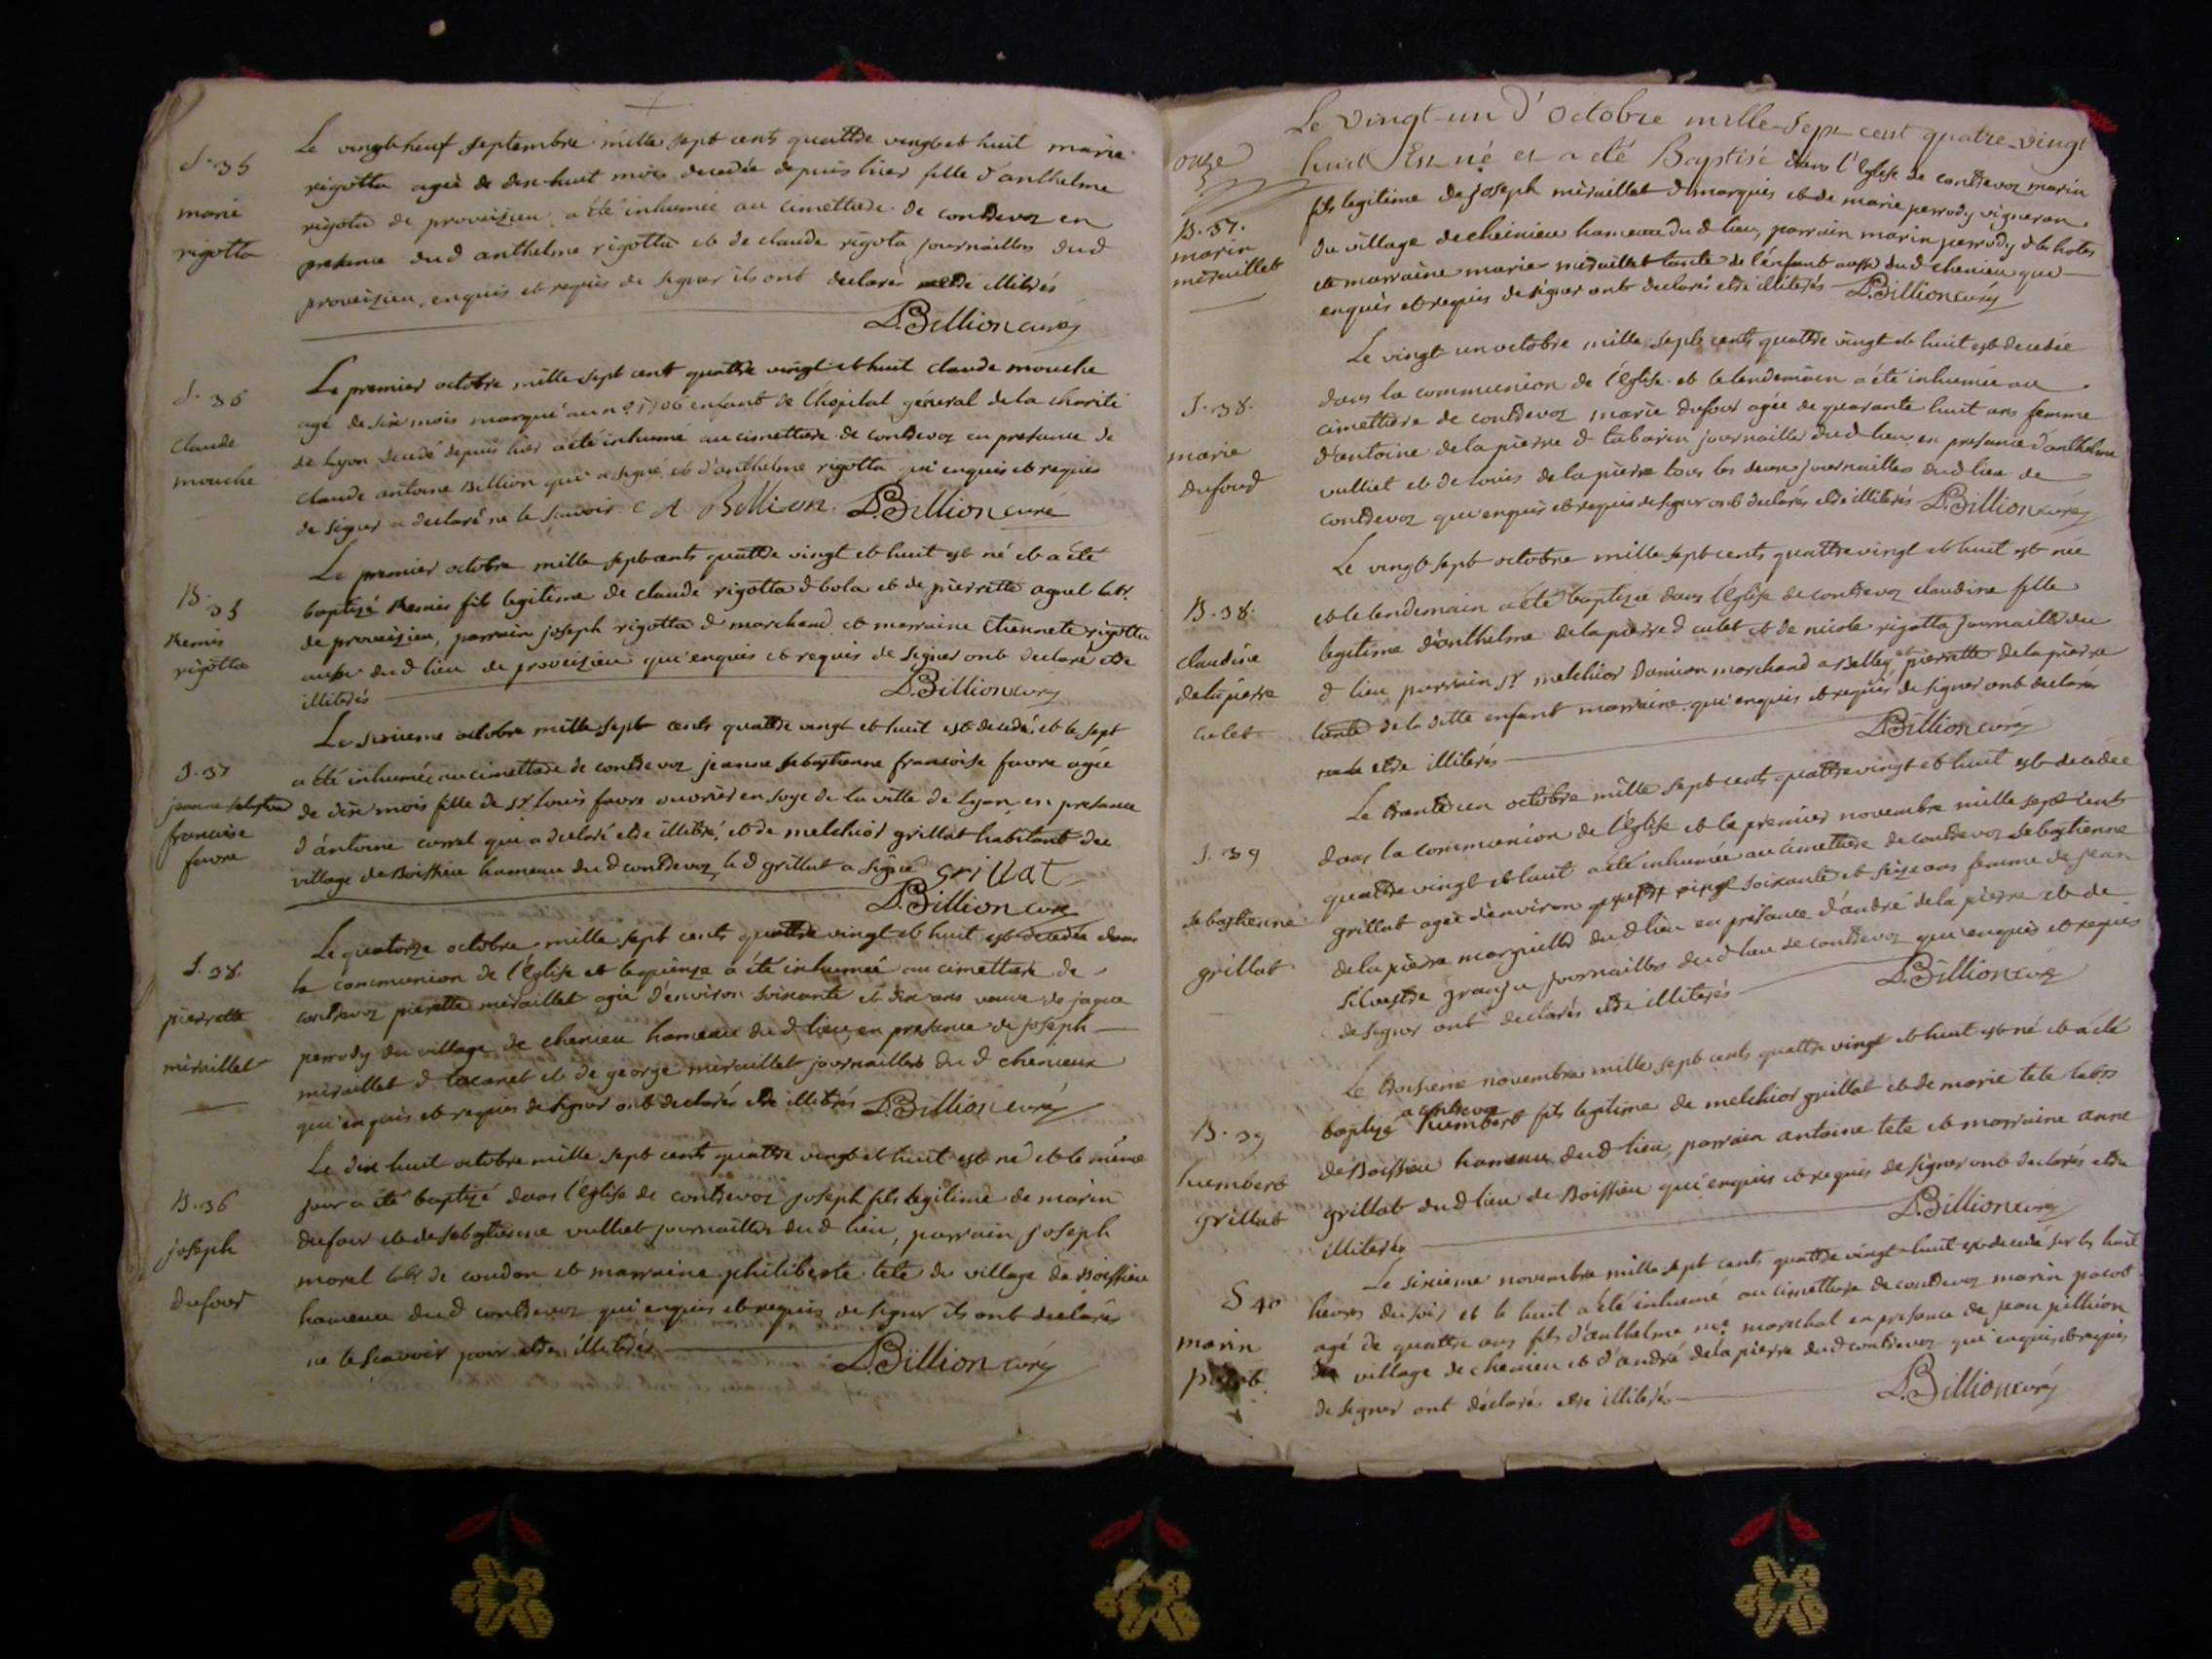 S. 35
marie
rigotta
Le vingt neuf septembre mille sept cents quattre vingt et huit marie
rigotta agée de dix-huit mois decedée depuis hier fille d'anthelme
rigota de proveizieu a été inhumée au cimettiere de contrevoz en
presence dud anthelme rigotta et de claude rigota journaillers dud
proveizieu, enquis et requis de signer ils ont declarés etre illitérés
D. Billion curé
S. 36
claude
mouche
Le premier octobre mille sept cent quattre vingt et huit claude mouche
agé de six mois marqué au n° enfant de l'hopital général de la charité
de Lyon decedé depuis hier a été inhumé au cimettiere de contrevoz en presence de
claude antoine Billion qui a signé et d'anthelme rigotta qui enquis et requis
de signer a declaré ne le sçavoir. C A Billion. D. Billion curé
B. 35
Remis
rigotta
Le premier octobre mille sept cents quattre vingt et huit est né et a été
baptizé Remis fils legitime de claude rigotta d bola et de pierrette agnel labr.
de proveizieu, parrain joseph rigotta d marchand et marraine Etiennete rigotta
aussi dud lieu de proveizieu qui enquis et requis de signer ont declaré etre
illiterés
D. Billion curé
S. 37
jeanne sebastienne
francoise
favre
Le sixieme octobre mille sept cents quattre vingt et huit est decedée et le sept
a été inhumée au cimettiere de contrevoz jeanne sebastienne francoise favre agée
de dix mois fille de Sr. Louis favre ouvrier en soye de la ville de Lyon en presence
d'antoine correl qui a declaré etre illitéré, et de melchior grillat habitant du
village de Boissieu hameau dud contrevoz, le d grillat a signé grillat
D. Billion curé
S. 38.
pierrette
miraillet
Le quatorze octobre mille sept cents quattre vingt et huit est decedée dans
la communion de l'Eglise et le quinze a été inhumée au cimettiere de
contrevoz pierrette miraillet agée d'environ soixante et dix ans veuve de jaque
perrody du village de chenieu hameau dud lieu, en presence de joseph
miraillet d lacanet et de george miraillet journaillers dud chenieux
qui enquis et requis de signer ont declarés etre illitérés D. Billion curé
B. 36
joseph
Dufour
Le dix huit octobre mille sept cents quattre vingt et huit est né et le même
jour a été baptizé dans l'église de contrevoz joseph fils legitime de marin
dufour et de sebastienne vulliet journaillers dud lieu, parrain joseph
morel labr de condon et marraine philiberte tete du village de Boissieu
hameau dud contrevoz qui enquis et requis de signer ils ont declarés
ne le scavoir pour etre illiterés
D. Billion curé
onze
B. 37.
marin
miraillet
Le vingt-un d'octobre mille-sept-cent quatre-vingt
huit Est né et a été Baptisé dans l'Eglise de contrevoz marin
fils legitime de joseph miraillet d marquis et de marie perrody vigneron
du village de cheinieu hameau du d lieu, parrain marin perrody
et marraine marie miraillet tante de l'enfant aussi dud chenieu qui
enquis et requis de signer ont declarés etre illiterés D. Billion curé
S. 38.
marie
dufour
Le vingt un octobre mille sept cents quattre vingt et huit est decedée
dans la communion de l'Eglise et le lendemain a été inhumée au
cimettiere de contrevoz marie dufour agée de quarante huit ans femme
d'antoine de la pierre d tabarin journailler dud lieu, en presence d'anthelme
vulliet et de louis de la pierre tous les deux journaillers dud lieu de
contrevoz qui enquis et requis de signer ont declarés etre illiterés D. Billion curé
B. 38.
claudine
delapierre
culet
Le vingt sept octobre mille sept cents quattre vingt et huit est née
et le lendemain a été baptizée dans l'Eglise de contrevoz claudine fille
legitime d'anthelme delapierre d culet et de nicole rigotta journailler du
d lieu parrain Sr. melchior Damian marchand a Belley et pierrette de la pierre
tante de la ditte enfant marraine qui enquis et requis de signer ont declarés
etre illiterés
D. Billion curé
S. 39
sebastienne
grillat
Le trente un octobre mille sept cents quattre vingt et huit est decedée
dans la communion de l'Eglise et le premier novembre mille sept cents
quattre vingt et huit a été inhumée au cimettiere de contrevoz sebastienne
grillat agée d'environ soixante et seize ans femme de jean
dela pierre marguillier dud lieu en presence d'andré dela pierre et de
silvestre journaillers dud lieu de contrevoz qui enquis et requis
de signer ont declarés etre illiterés
D. Billion curé
B. 39
humbert
grillat
Le troisieme novembre mille sept cents quattre vingt et huit est né et a été
baptizé a contrevoz humbert fils legitime de melchior grillat et de marie tete labrs
de Boissieu hameau dud lieu, parrain antoine tete et marraine anne
grillat dud lieu de Boissieu qui enquis et requis de signer ont declarés etre
illiterés
D. Billion curé
S 40
marin
Le sixieme novembre mille sept cents quattre vingt huit est decedé sur les huit
heures du soir et le huit a été inhumé au cimettiere de contrevoz marin pacot
agé de quattre ans fils d'anthelme me. marechal en presence de jean pillion
du village de chenieu et d'andré dela pierre dud contrevoz qui enquis et requis
de signer ont déclarés etre illiterés
D. Billion curé